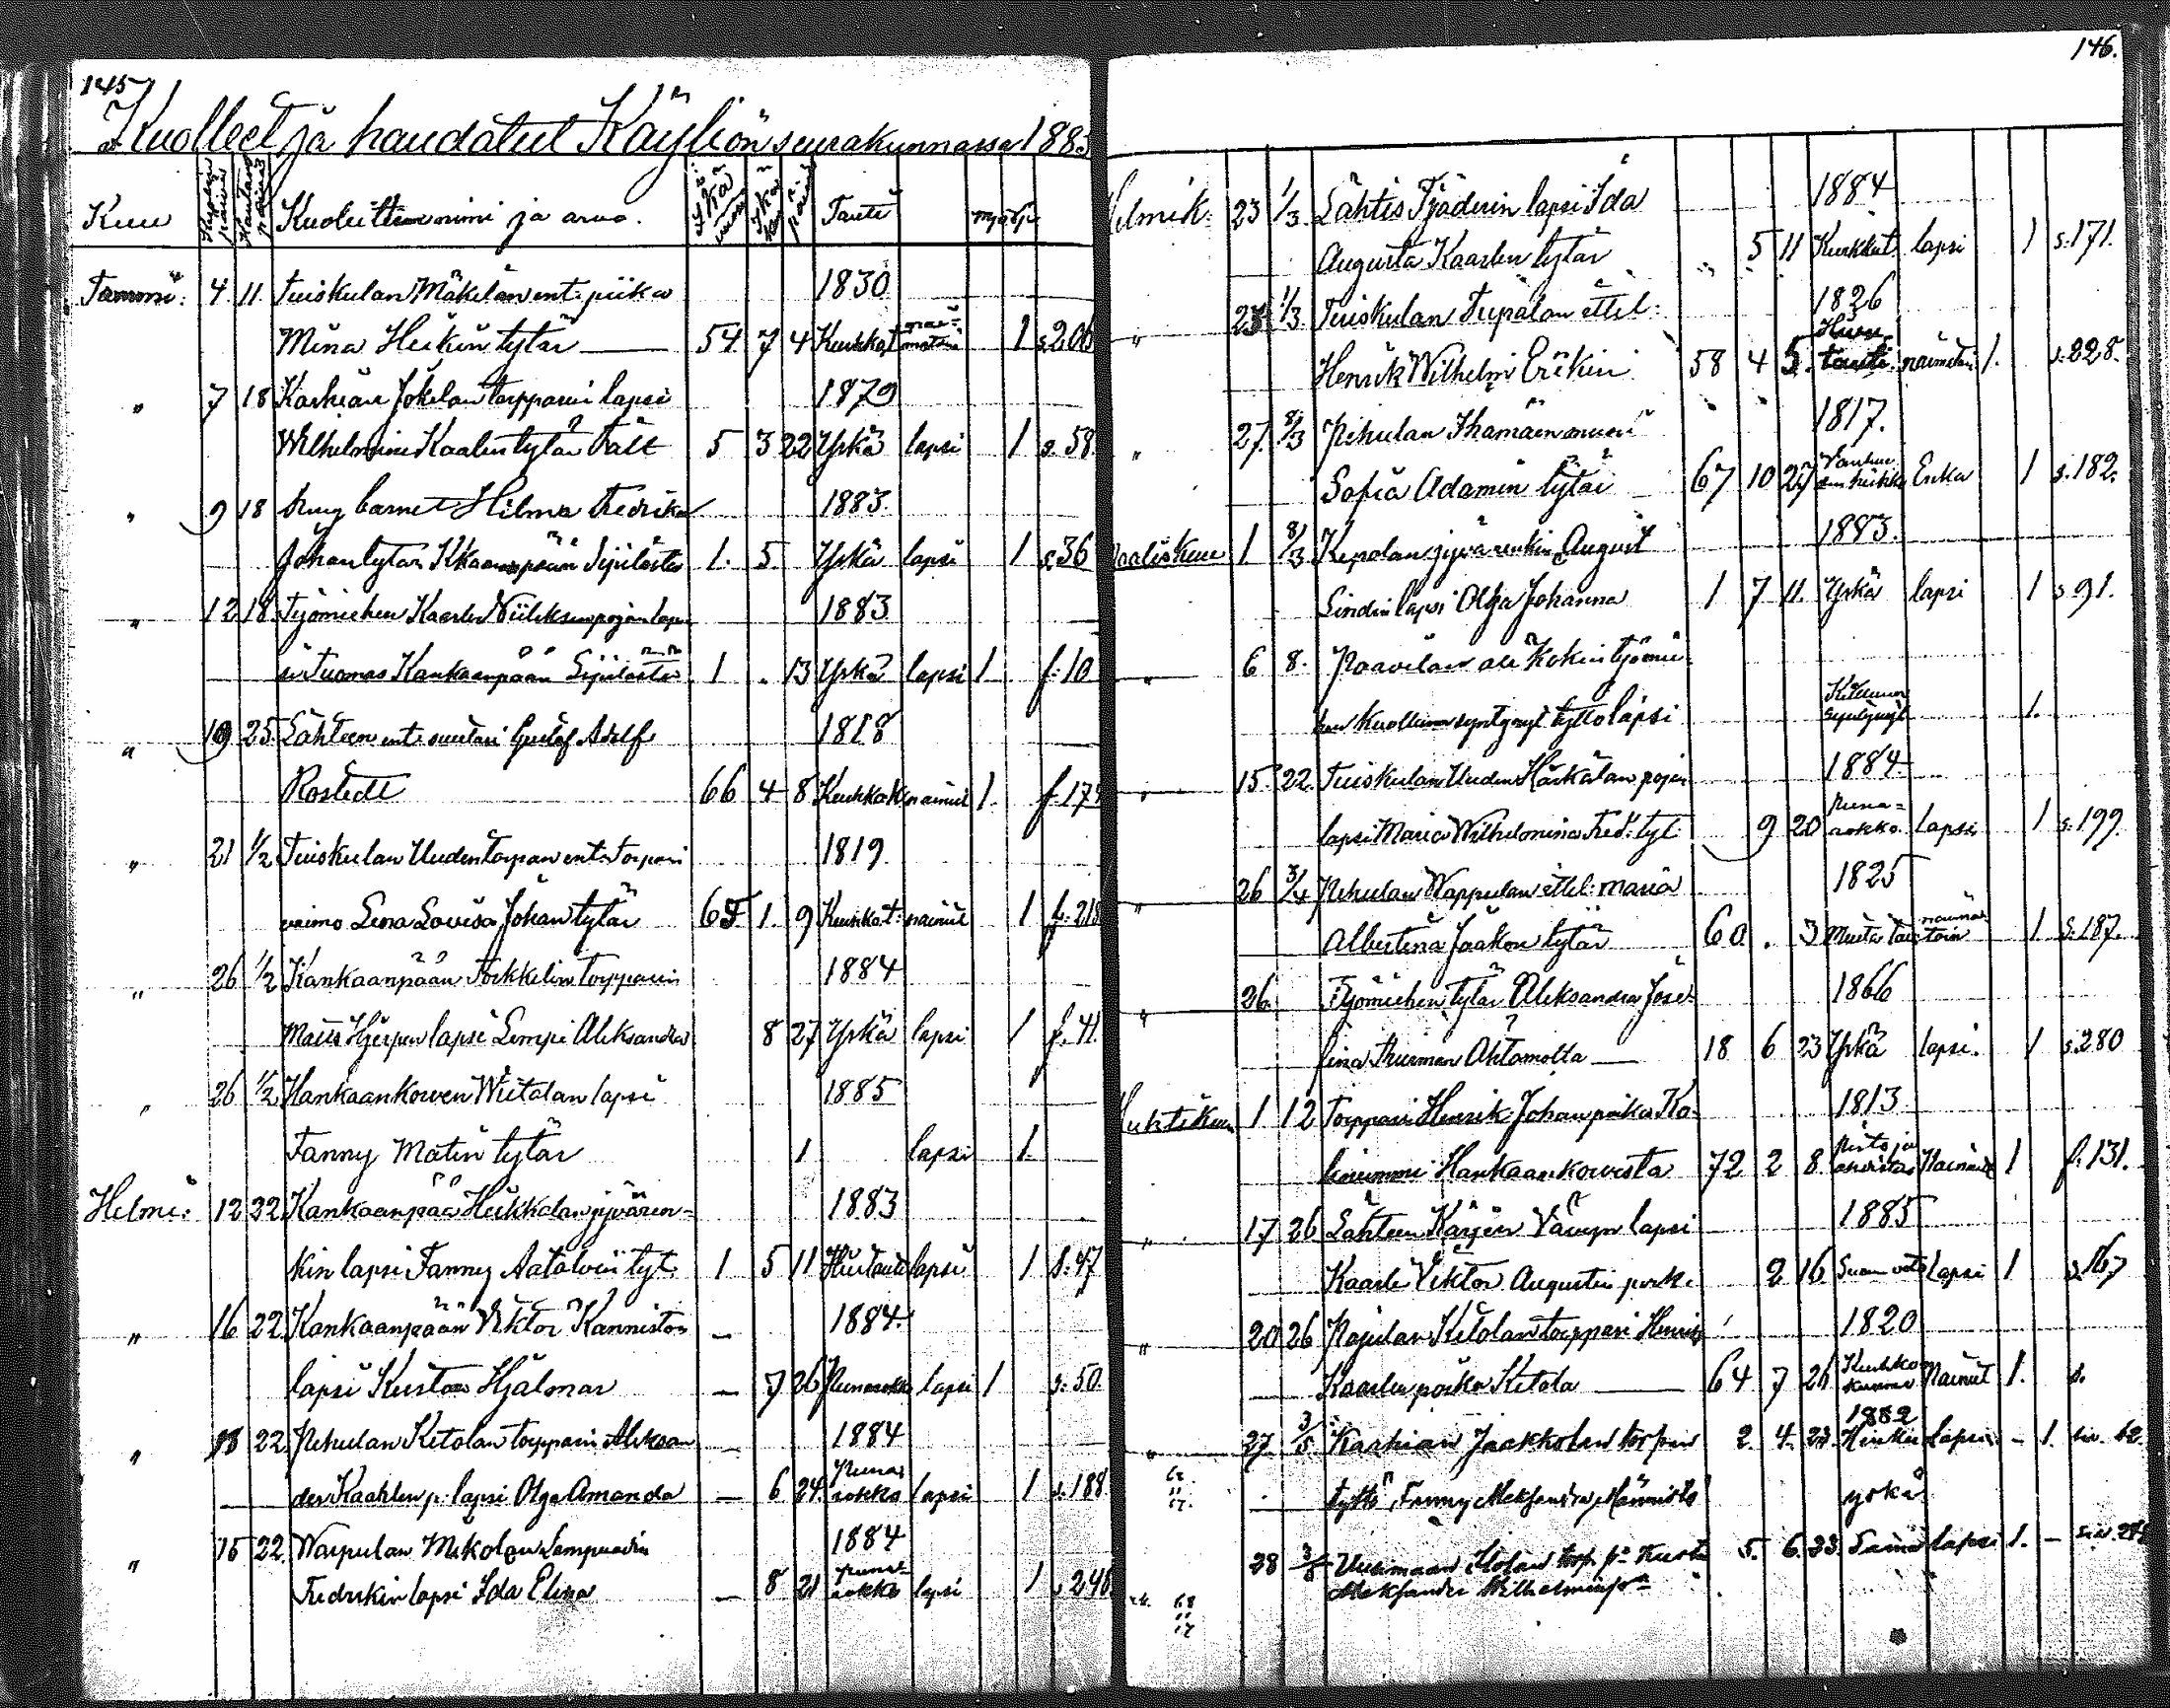 145
Kuolleet ja haudatut Käyliön seurakunnassa 1885
Kuu Kuolin päivä Hautaus päivä Kuolleitten nimi ja arvo. Ikä vuosi Ikä kuu päivä Tauti mp vp
Tammi: 4 11 Tuiskulan Mäkelän ent. piika 1830
Mina Heikin tytär 54 7 4 Kurkkot. naimatoin 1 s.206
" 7 18 Karhian Jokelan torpparin lapsi 1879
Wilhelmina Kaalen tytär Fält 5 3 22 Yskä lapsi 1 s. 58.
" 9 18 barnet Hilma Fredrika 1883.
Johan tytär Kankaanpään Sipilästä 1. 5. Yskä lapsi 1 s.36
" 12 18 Työmiehen Kaarlo Wiileksenpojan lap- 1883
si Tuomas Kankaanpään Sipilästä 1 . 13 Yskä lapsi 1 f. 10
" 19 25 Lähteen ent. suutari Gustaf Adolf 1818
Rostedt 66 4 8 Kurkkot. nainut 1. f. 179
" 21 1/2 Tuiskulan Uudentorpan ent. torpari 1819
vaimo Lena Lovisa Johan tytär 65 1. 9 Kurkkot: nainut 1 f. 218
" 26 1/2 Kankaanpään Torkkelin torpparin 1884
Matts Hjerpen lapsi Lempi Aleksandra 8 27 Yskä lapsi 1 f. 41.
" 26 1/2 Kankaankowen Wiitalan lapsi 1885
Fanny Matin tytär 1 lapsi 1.
Helmi: 12 22 Kankaanpää Heikkalan jyvären- 1883
kin lapsi Fanny Aatolvin tyt. 1 5 11 lapsi 1 s. 47
" 16 22 Kankaanpään Viktor Kanniston 1884.
lapsi Kustaa Hjalmar — 7 26 Punarokko lapsi 1 s. 50.
" 18 22 Pehulan Ketolan torpparin Aleksan- 1884
der Kaarlen p. lapsi Olga Amanda — 6 24. Punarokko lapsi 1 s. 188
" 15 22 Waipulan Mikolan Lampuodin 1884
Fredrikin lapsi Ida Elina — 8 21 Punarokko lapsi 1 s 240
146.
Helmik: 23 1/3 Lähtis Tjäderin lapsi Ida 1884
Augusta Kaarlen tytär " 5 11 Kurkkut. lapsi 1 s. 171.
" 23 1/3 Tuiskulan Tupalan ittel: 1826
Henrik Wilhelm Erikin 58 4 5. tauti nainut 1. s. 228.
" 27. 8/3 Pehulan Ihamäen muori 1817.
Sofia Adamin tytär 67 10 27 Vanhuuden heikko Leska 1 s. 182.
Maaliskuu 1 8/3 Kepolan jyvä renkin August 1883.
Lindin lapsi Olga Johanna 1 7 11. Yskä lapsi 1 s. 91.
" 6 8. Paavilan ala Kokin työmie-
hen kuollena syntynyt tyttölapsi Kuollena syntynyt 1.
" 15. 22. Tuiskulan Uuden Härkälan pojan 1884.
lapsi Maria Wilhelmina Fred. tyt. 9 20 Punarokko. lapsi 1 s. 199.
" 26 3/4 Pehulan Wappulan ittel. Maria 1825
Albertina Jaakon tytär 60 . 3 Muita tau naimatoin 1 s. 187.
" 26. Työmiehen tytär Aleksandra Jose- 1866
fina Ahtamolta 18 6 23 Yskä lapsi. 1 s. 280
Huhtikuu 1 12 Torppari Henrik Johan poika Ko- 1813
Kankaankowesta 72 2 8. Nainut 1 f. 131.
" 17 26 Lähteen Kärjen lapsi 1885
Kaarle Viktor Augustin poik. 2 16 lapsi 1 s 167
" 20 26 Pajulan Ketolan torppari Henrik 1820
Kaarlen poika Ketola 64 7 26 Nainut 1. s.
" 27. 3/5 Karhian Jaakkolan torpan 2. 4. 23. 1882 Hinku Lapsi — 1. siv. 62.
tyttö, Fanny Aleksandra Männistö yskä
28 3/5 Uusmaan torp. p:a Kusta 5. 6. 23. Sama lapsi 1. —
Aleksander Wilhelmin p:a